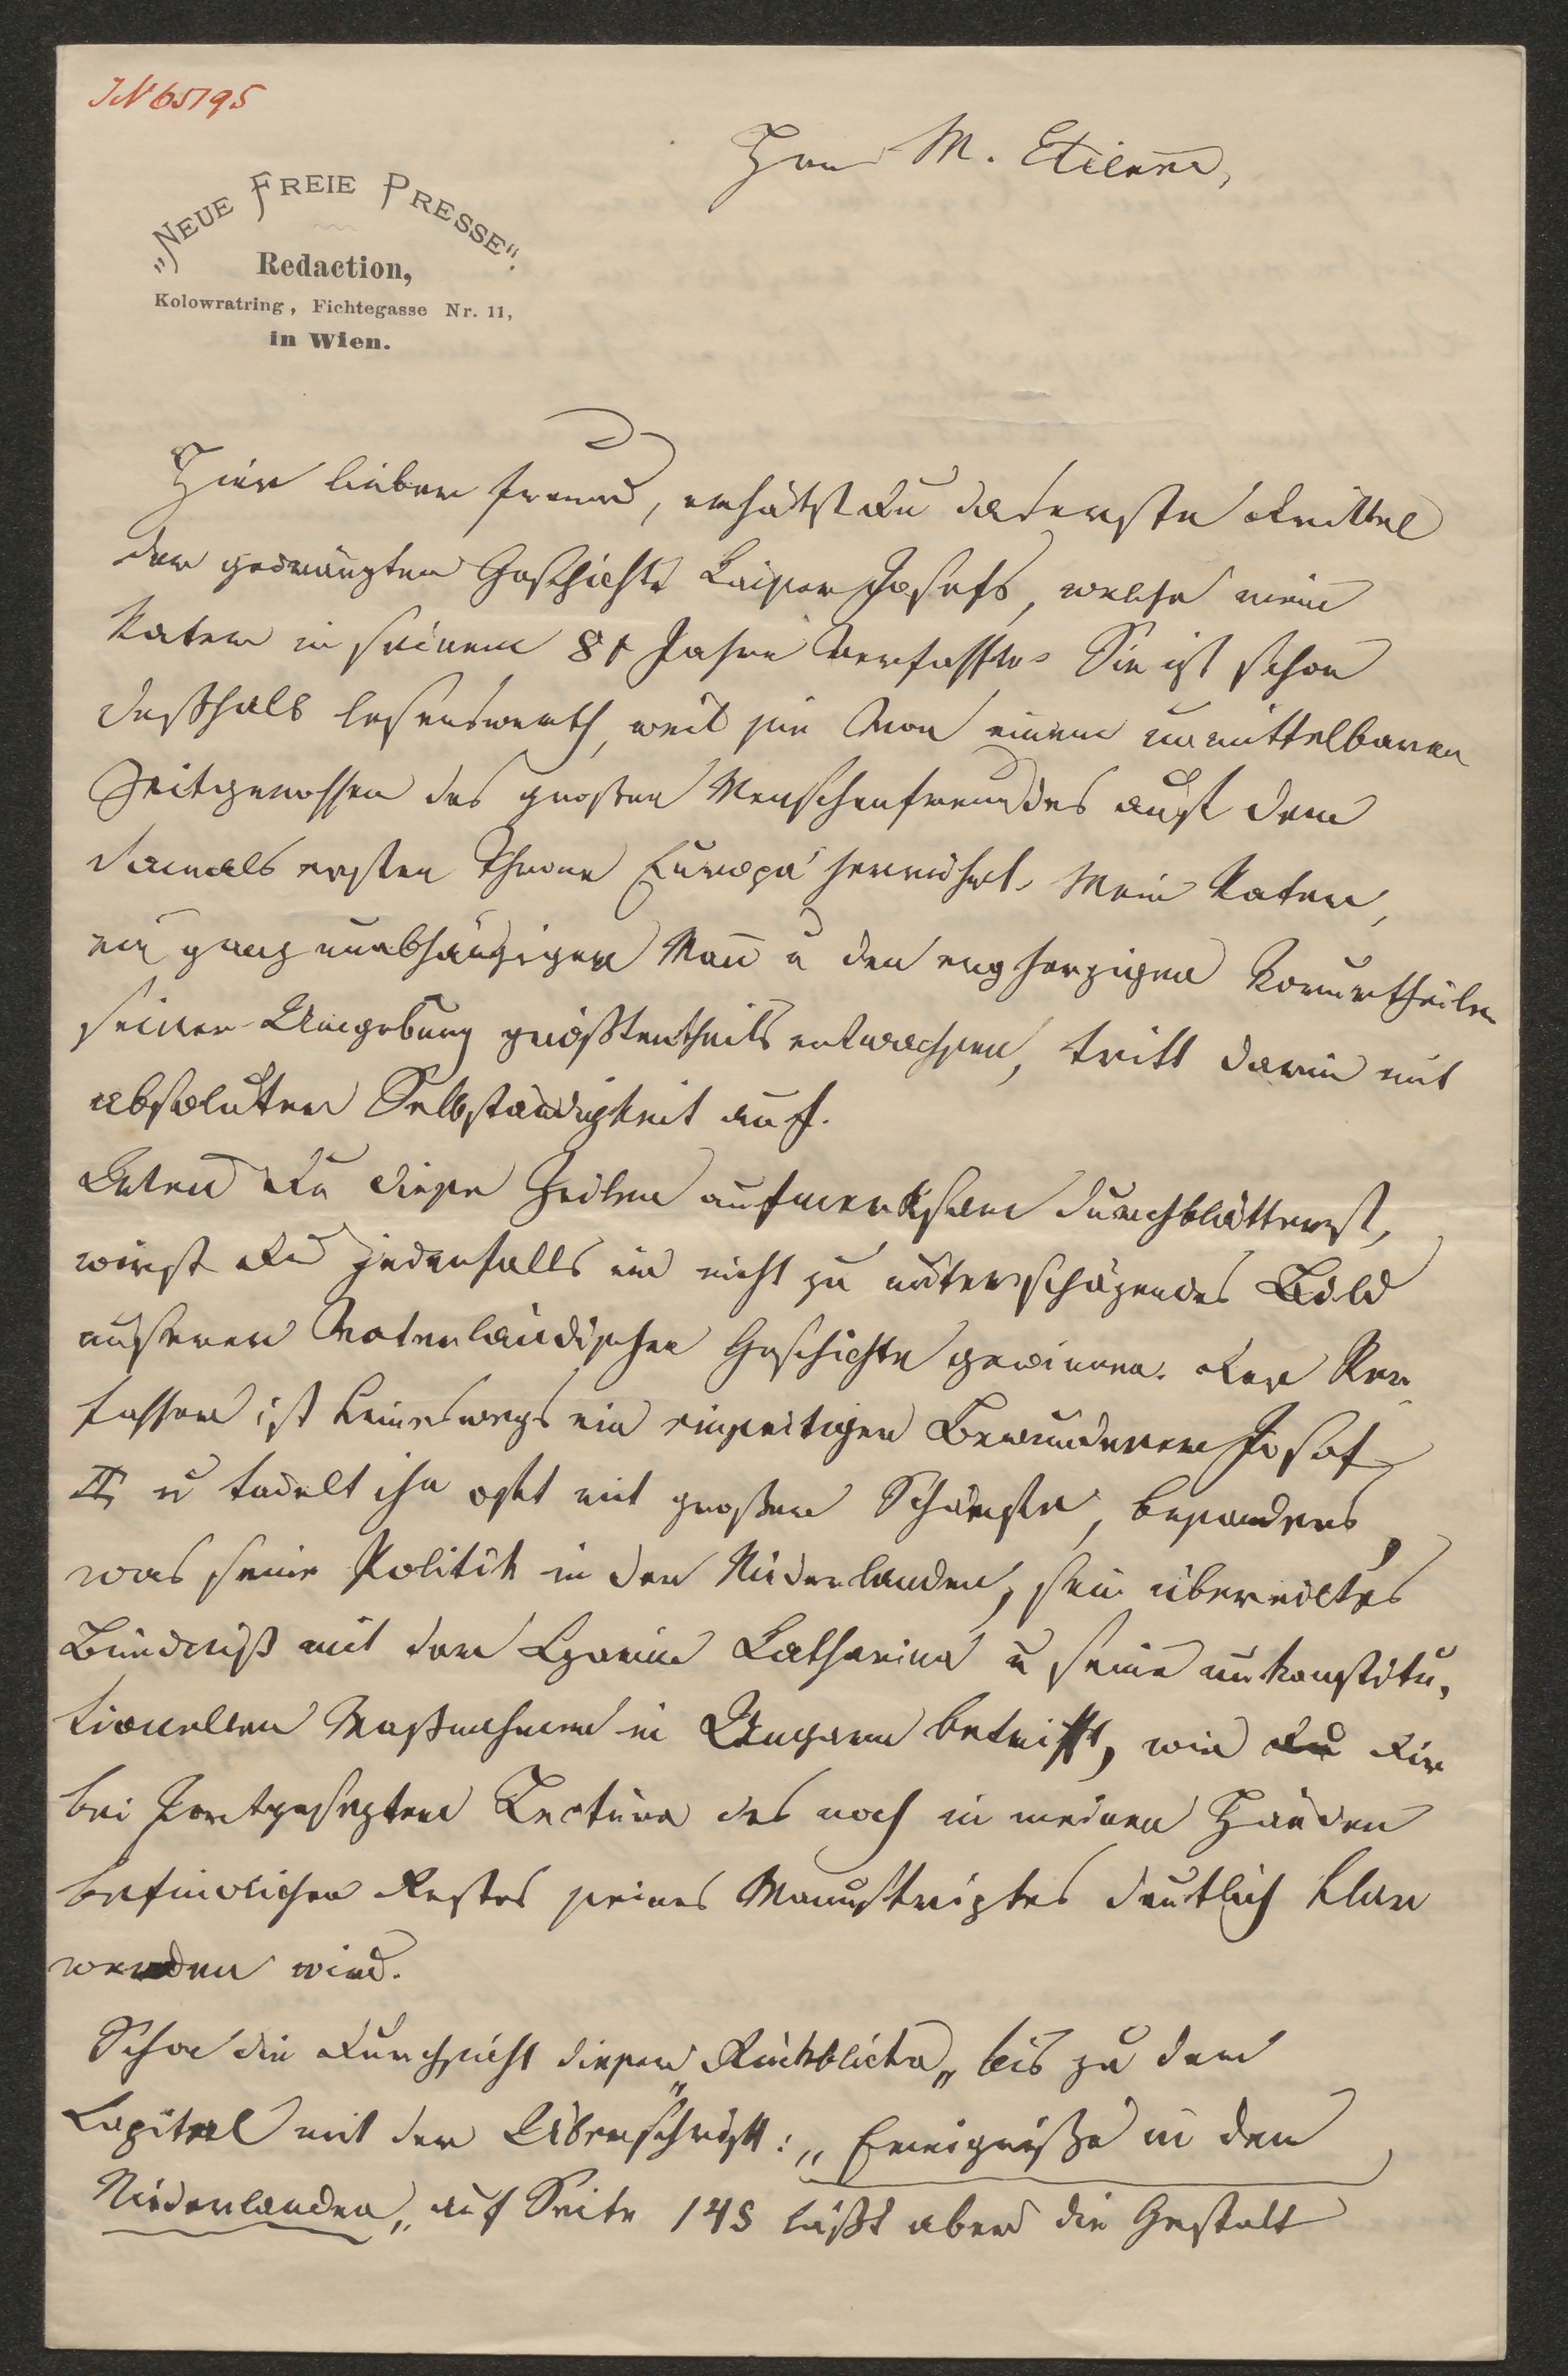 JN 65195
Herrn M. Etienne,
„NEUE FREIE PRESSE“.
Redaction,
Kolowratring, Fichtegasse Nr. 11,
in Wien.
Hier lieber Freund, erhältst Du das erste Drittel
der gedrängten Geschichte Kaiser Josefs, welche mein
Vater in seinem 81 Jahre verfasste. Sie ist schon
deßhalb lesenswerth, weil sie von einem unmittelbaren
Zeitgenossen des großen Menschenfreundes auf dem
damals ersten Throne Europa's herrührt. Mein Vater,
ein ganz unabhängiger Mañ u den engherzigen Vorurtheilen
seiner Umgebung größtentheils entwachsen, tritt darin mit
absoluter Selbständigkeit auf.
Du diese Zeilen aufmerksam durchblätterst,
wirst Du jedenfalls ein nicht zu unterschäzendes Bild
unserer vaterländischen Geschichte gewinnen. Der Ver-
fasser ist keineswegs ein einseitiger Bewunderer Josef
II, u tadelt ihn oft mit großer Schärfe, besonders,
was seine Politik in den Niederlanden, sein übereiltes
Bündniß mit der Czarin Catharina u seine unkonstitu-
tionellen Maßnahmen in Ungarn betrifft, wie Du Dir
bei fortgesezter Lectüre des noch in meinen Händen
befindlichen Restes seines Manuskriptes deutlich klar
werden wird.
Schon die Durchsicht dieser „Rückblicke„ bis zu dem
Capitel mit der Überschrift: „Ereigniße in den
Niederlanden„ auf Seite 145 läßt aber die Gestalt